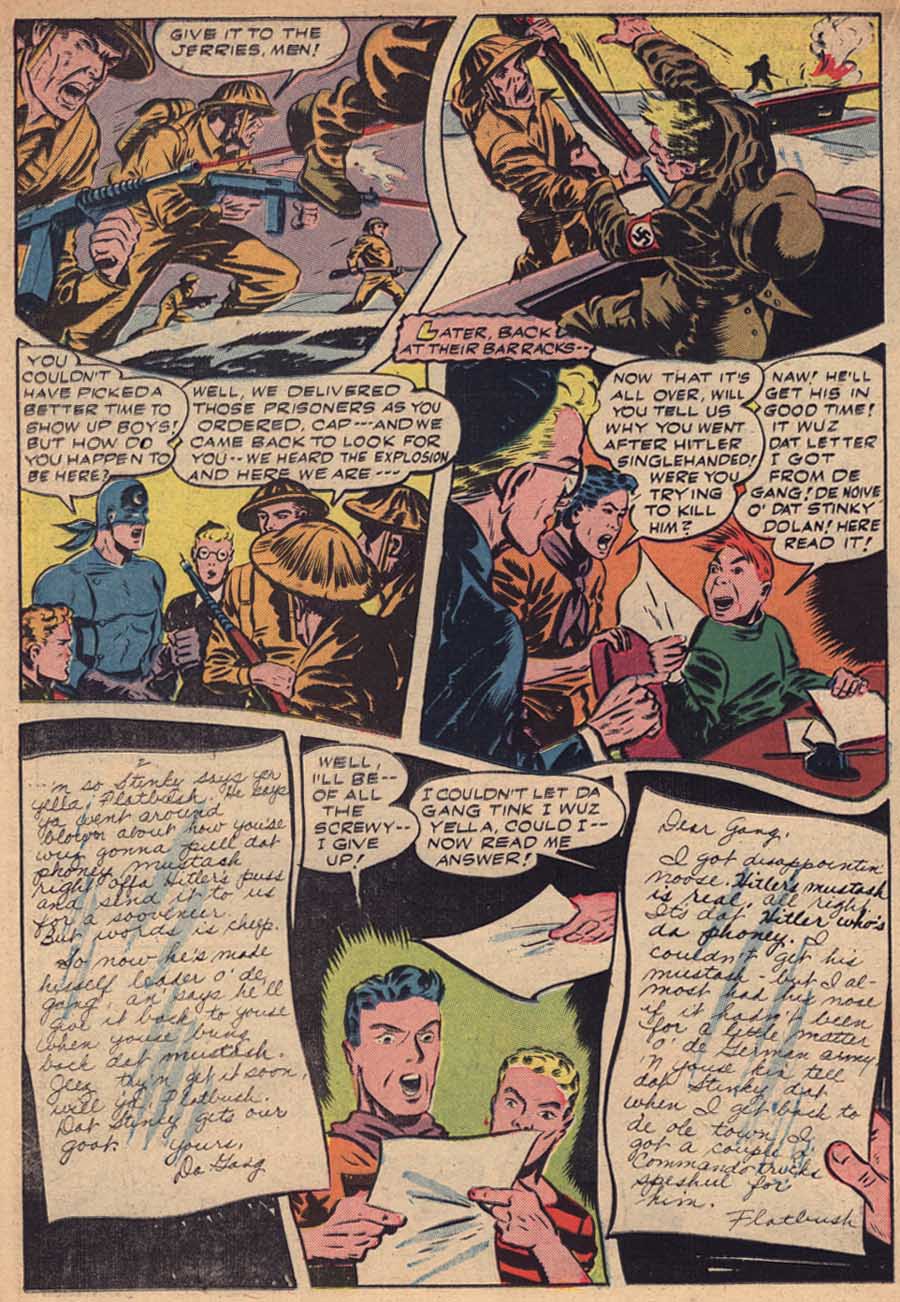 GIVE IT TO THE
JERRIES, MEN!
LATER, BACK
AT THEIR BARRACKS--
YOU
COULDN'T
HAVE PICKED A
BETTER TIME TO
SHOW UP BOYS!
BUT HOW DO
YOU HAPPEN TO
BE HERE?
WELL, WE DELIVERED
THOSE PRISONERS AS YOU
ORDERED, CAP---AND WE
CAME BACK TO LOOK FOR
YOU--WE HEARD THE EXPLOSION
AND HERE WE ARE---
NOW THAT IT'S
ALL OVER, WILL
YOU TELL US
WHY YOU WENT
AFTER HITLER
SINGLEHANDED!
WERE YOU
TRYING
TO KILL
HIM?
NAW! HE'LL
GET HIS IN
GOOD TIME!
IT WUZ
DAT LETTER
I GOT
FROM DE
GANG! DE NOIVE
O' DAT STINKY
DOLAN! HERE
READ IT!
2
...'n so Stinky says yer
yella, Flatbush. He says
ya went around
blowin about how you'se
wuz gonna pull dat
phoney mustash
right offa Hitler's puss
and send it to us
for a sooveneer.
But words is cheep.
So now he's made
himself leader o' de
gang, an' says he'll
give it back to youse
when youse bring
back dat mustash.
Jeez try 'n get it soon,
will ya Flatbush.
Dat Stinky gets our
goat. yours,
Da Gang
WELL,
I'LL BE--
OF ALL
THE
SCREWY--
I GIVE
UP!
I COULDN'T LET DA
GANG TINK I WUZ
YELLA, COULD I--
NOW READ ME
ANSWER!
Dear Gang,
I got disappointin'
noose. Hitler's mustash
is real, all right.
Its dat Hitler who's
da phoney. I
couldn't get his
mustash - but I al-
most had his nose
if it hadn't been
for a little matter
o' de German army.
'n youse kin tell
dat Stinky dat
when I get back to
de ole town, I
got a couple o'
Commando tricks
speshul for
him.
Flatbush